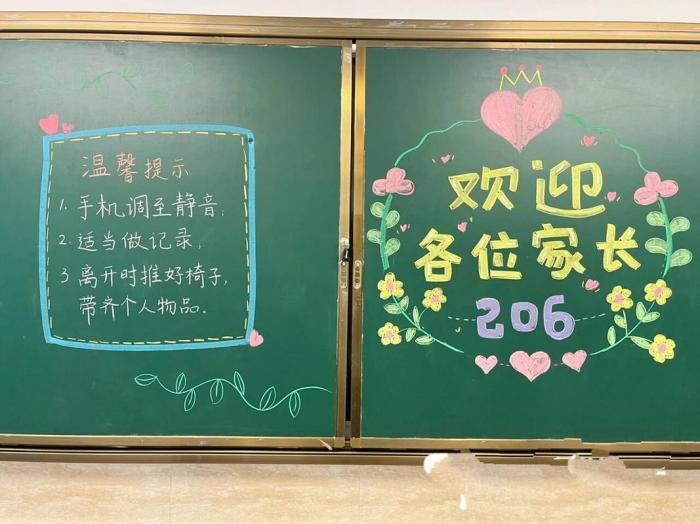 温馨提示
1. 手机调至静音;
2. 适当做记录;
3 离开时推好椅子,
带齐个人物品.
欢迎
各位家长
206